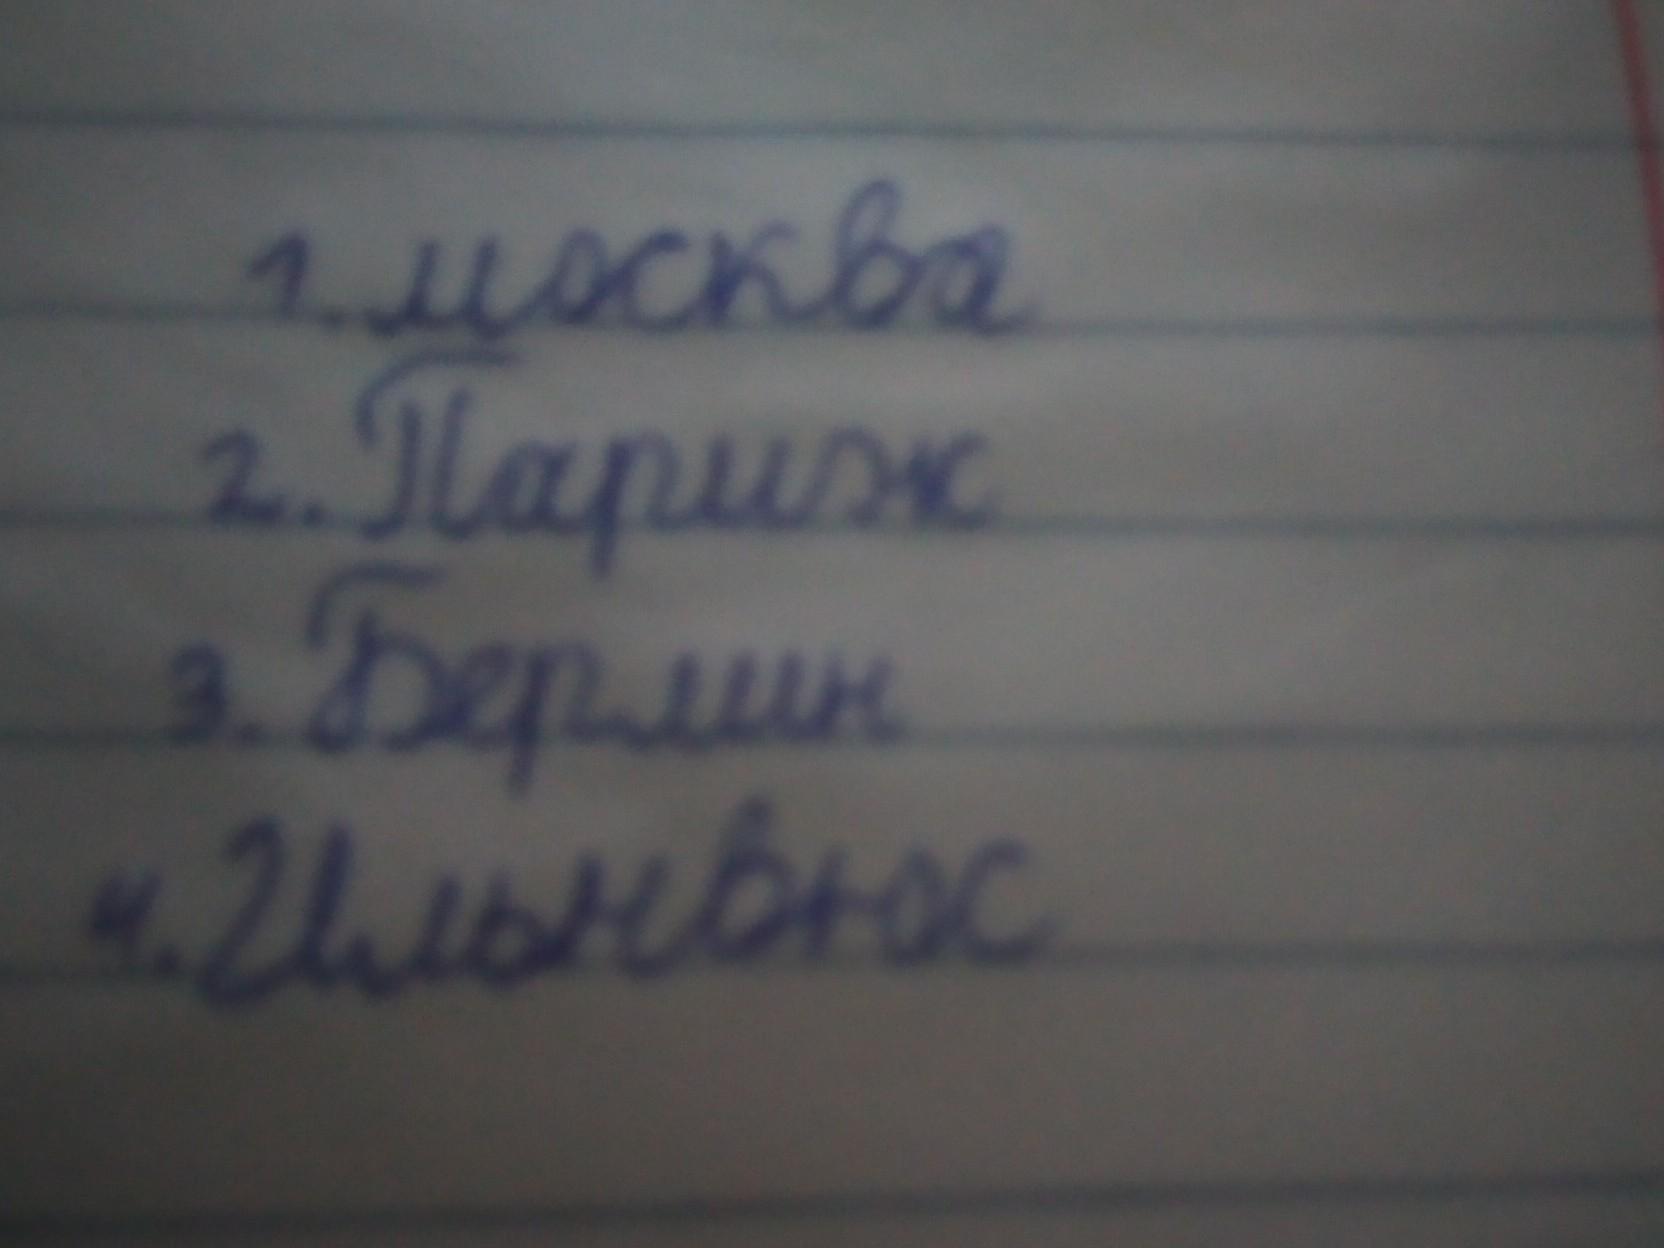 1. москва
2. Париж
3. Берлин
4. Ильнвюс